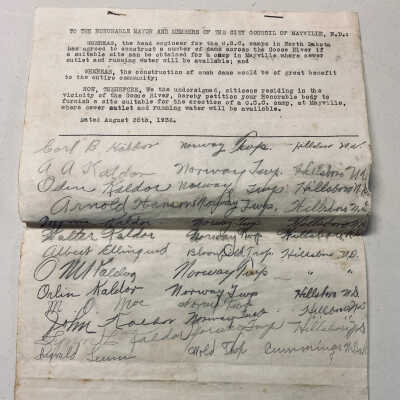 TO THE HONORABLE MAYOR AND MEMBERS OF THE CITY COUNCIL OF MAYVILLE, N.D.:
WHEREAS, the head engineer for the C.C.C. camps in North Dakota
has agreed to construct a number of dams across the Goose River if
a suitable site can be obtained for a camp in Mayville where sewer
outlet and running water will be available; and
WHEREAS, the construction of such dams would be of great benefit
to the entire community;
NOW, THEREFORE, We the undersigned, citizens residing in the
vicinity of the Goose River, hereby petition your Honorable body to
furnish a site suitable for the erection of a C.C.C. camp, at Mayville,
where sewer outlet and running water will be available.
Dated August 28th, 1934.
Carl B Kaldor Norway Twp. Hillsboro N.D.
A A Kaldor Norway Twp. Hillsboro N.D.
Oden Kaldor Norway Twp. Hillsboro N.D.
Arnold Hanson Norway Twp. Hillsboro N.D.
Kaldor Norway Twp Hillsboro
Walter Kaldor Norway Twp. Hillsboro N.D.
Albert Ellingred Twp Hillsboro N.D.
O M Kaldor Norway Twp " "
Orlin Kaldor Norway Twp Hillsboro N.D.
M O Moe Norway Twp Hillsboro N.D.
John Kaldor Norway Twp Hillsboro N.D.
Kaldor Norway Twp Hillsboro N.D.
Twp Cummings N.Dak